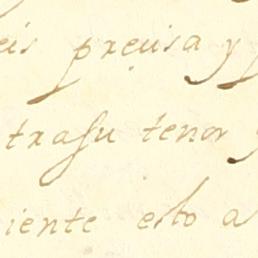 eis preuisa y
trasu tenor y
iente esto a